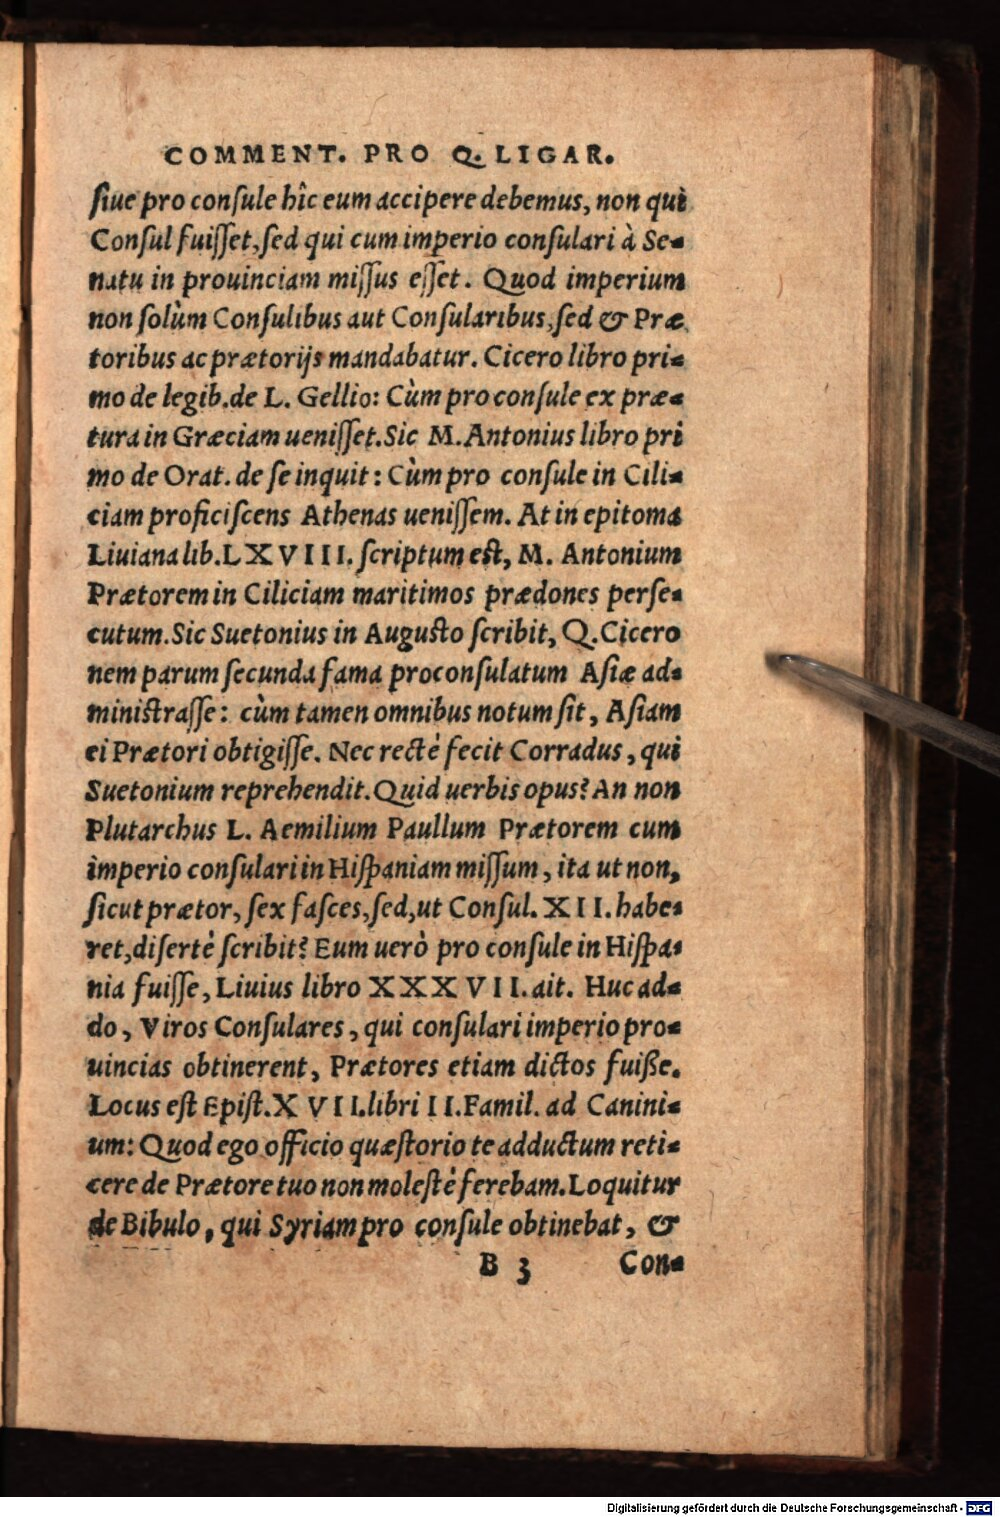 COMMENT. PRO Q. LIGAR.
ſiue pro conſule hîc eum accipere debemus, non qui
Conſul fuiſſet, ſed qui cum imperio conſulari à Se-
natu in prouinciam miſſus eſſet. Quod imperium
non ſolùm Conſulibus aut Conſularibus, ſed & Præ
toribus ac prætorijs mandabatur. Cicero libro pri-
mo de legib. de L. Gellio: Cùm pro conſule ex præ-
tura in Græciam ueniſſet. Sic M. Antonius libro pri
mo de Orat. de ſe inquit: Cùm pro conſule in Cili-
ciam proficiſcens Athenas ueniſſem. At in epitoma
Liuiana lib. LXVIII. ſcriptum eſt, M. Antonium
Prætorem in Ciliciam maritimos prædones perſe-
cutum. Sic Suetonius in Auguſto ſcribit, Q. Cicero
nem parum ſecunda fama proconſulatum Aſiæ ad-
miniſtraſſe: cùm tamen omnibus notum ſit, Aſiam
ei Prætori obtigiſſe. Nec rectè fecit Corradus, qui
Suetonium reprehendit. Quid uerbis opus? An non
Plutarchus L. Aemilium Paullum Prætorem cum
imperio conſulari in Hiſpaniam miſſum, ita ut non,
ſicut prætor, ſex faſces, ſed, ut Conſul. XII. habe-
ret, diſertè ſcribit? Eum uerò pro conſule in Hiſpa-
nia fuiſſe, Liuius libro XXXVII. ait. Huc ad-
do, Viros Conſulares, qui conſulari imperio pro-
uincias obtinerent, Prætores etiam dictos fuiße.
Locus eſt Epiſt. XVII. libri II. Famil. ad Canini-
um: Quod ego officio quæſtorio te adductum reti-
cere de Prætore tuo non moleſtè ferebam. Loquitur
de Bibulo, qui Syriam pro conſule obtinebat, &
B 3 Con-
Digitalisierung gefördert durch die Deutsche Forschungsgemeinschaft - DFG